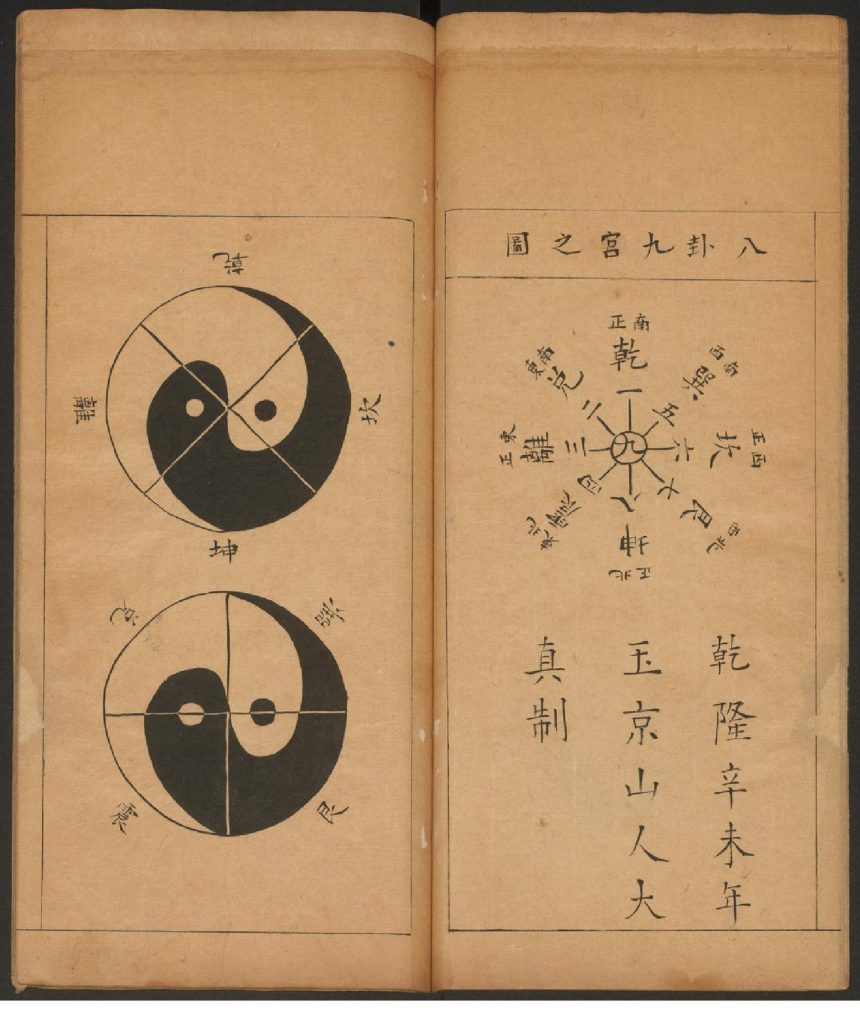 八卦九宮之圖
正南
乾
一
西南
巽
五
正西
坎
六
西北
艮
七
正北
坤
八
東北
震
四
正東
離
三
東南
兌
二
九
乾隆辛未年
玉京山人大
真制
乾
坎
離
坤
兌
巽
艮
震